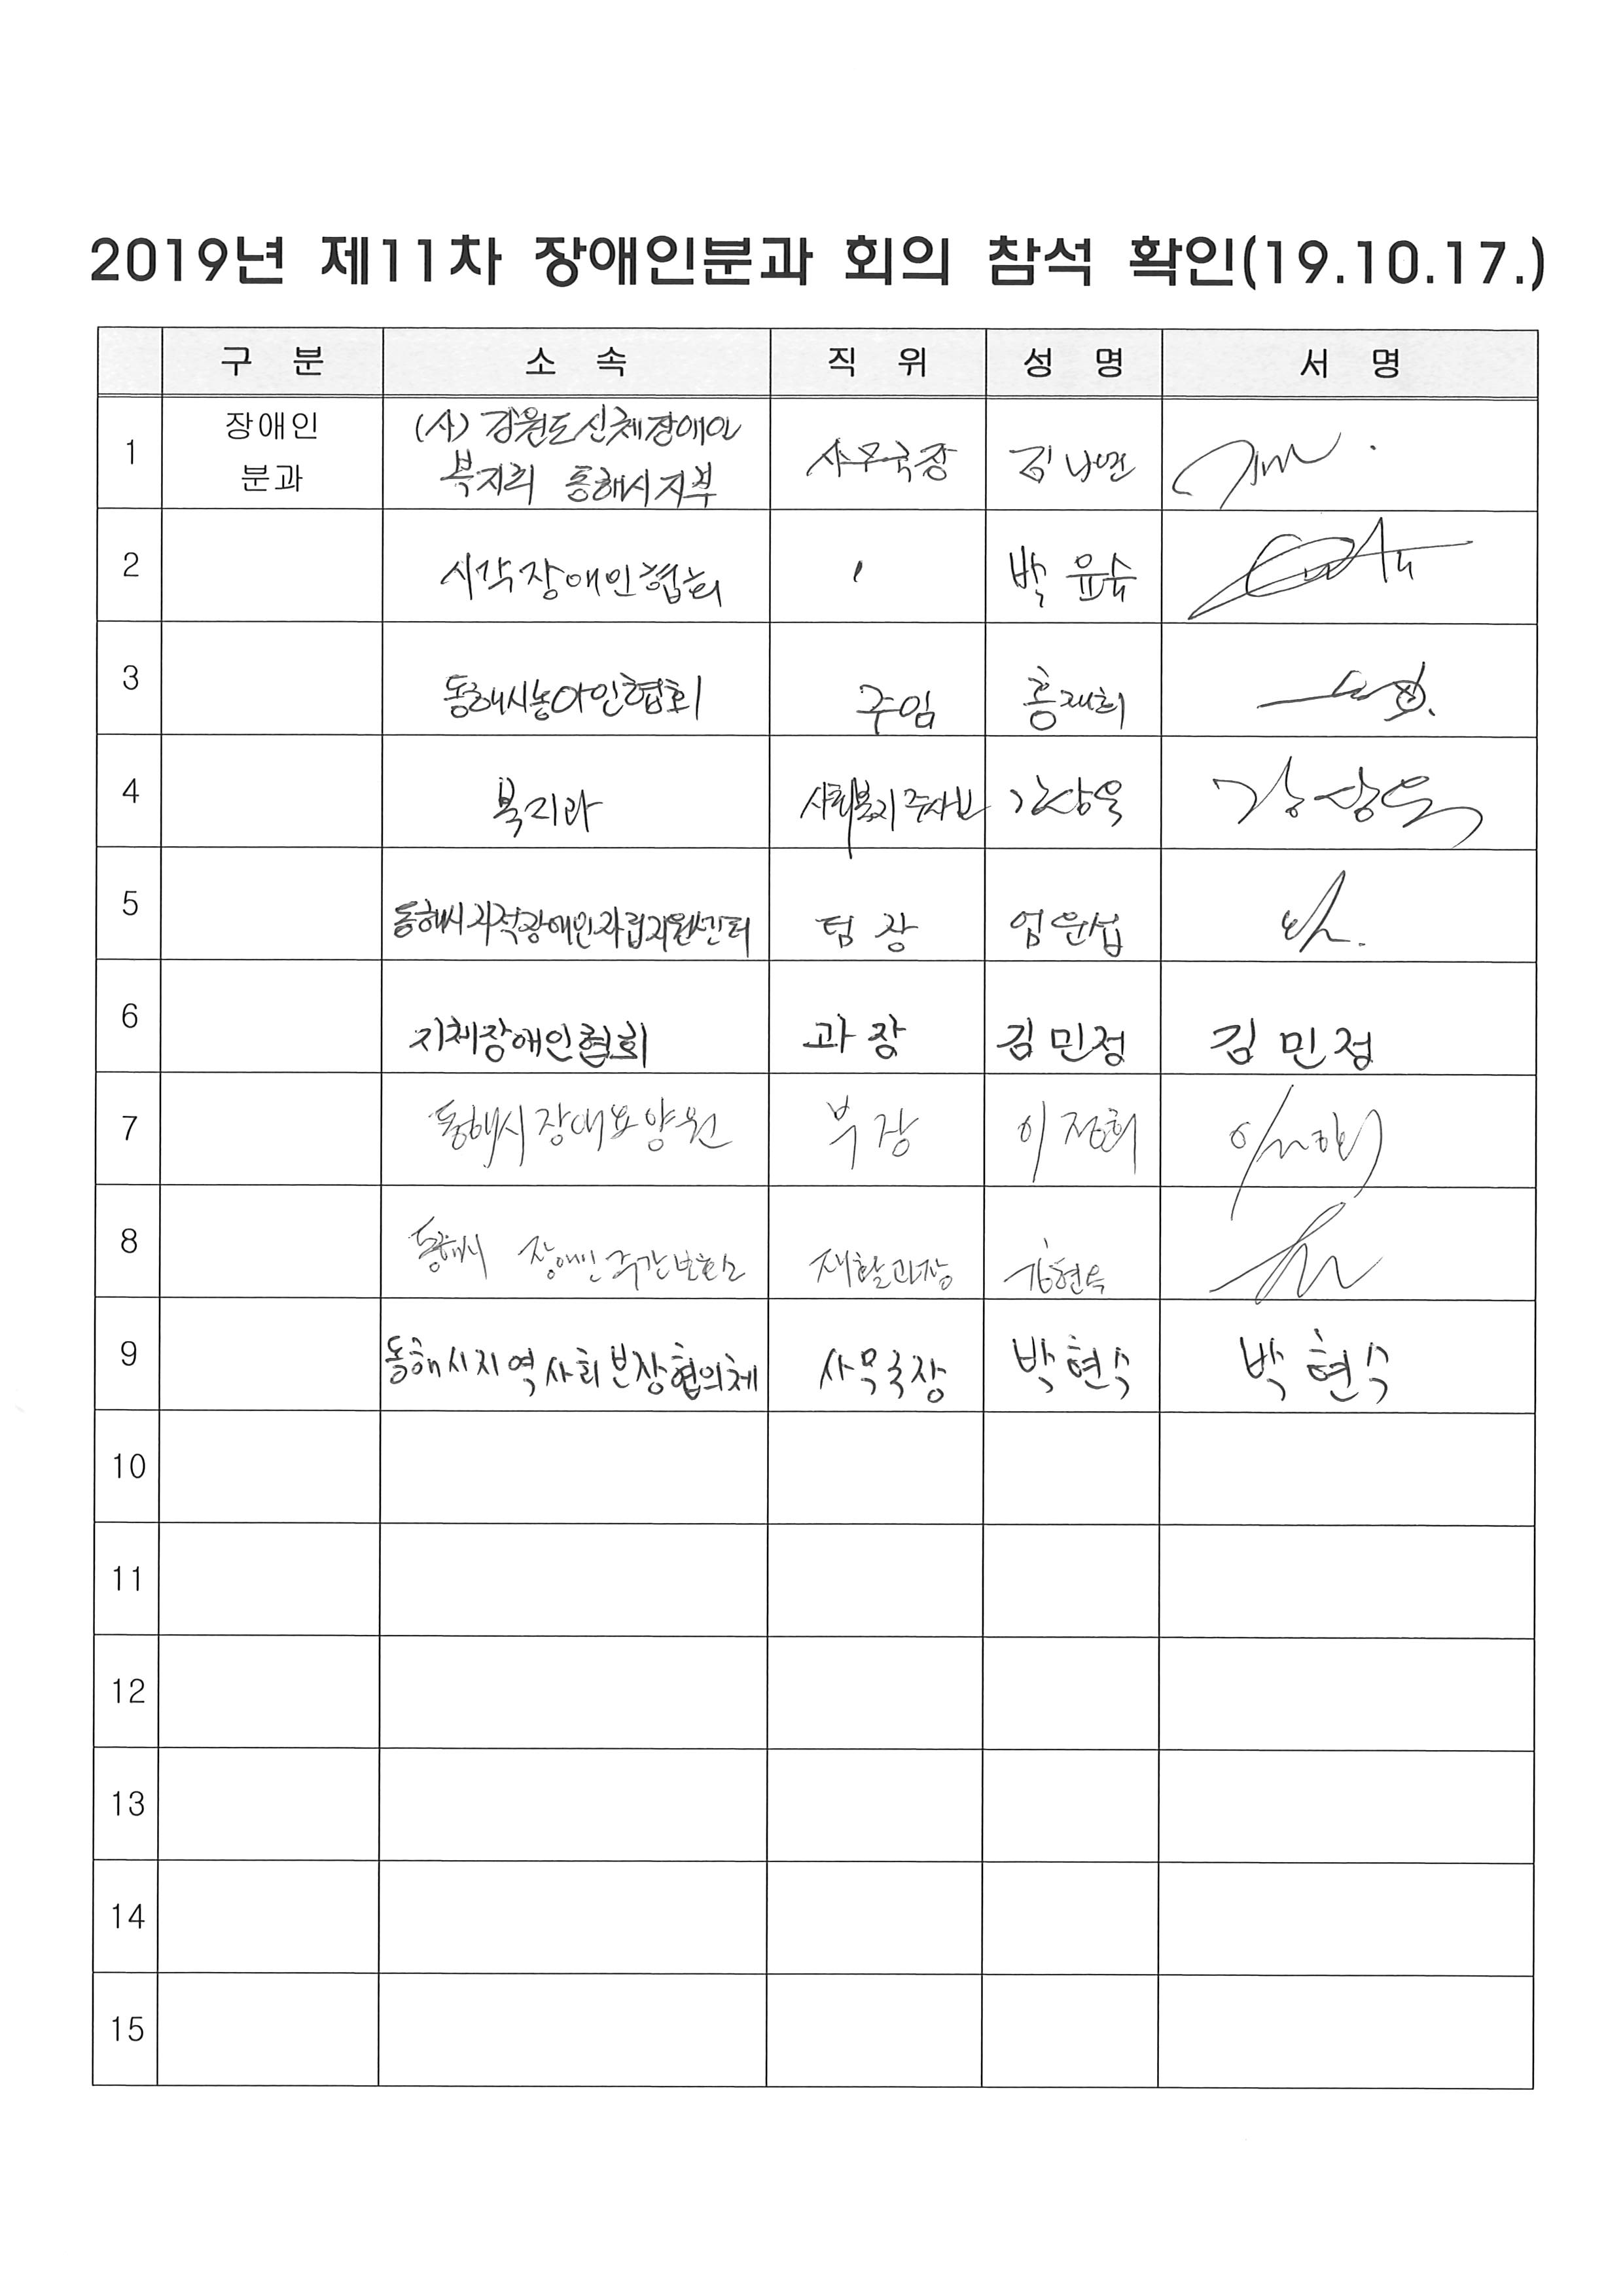 2019년 제11차 장애인분과 회의 참석 확인(19.10.17.)
구 분 소 속 직 위 성 명 서 명
1 장애인 분과 (사)강원도신체장애인 복지회 동해시지부 사무국장 김나연
2 시각장애인협회 〃 박윤슉
3 동해시농아인협회 주임 홍재희
4 복지과 사회복지주사보 강상욱 강상욱
5 동해시지적장애인자립지원센터 팀장 엄윤섭
6 지체장애인협회 과장 김민정 김민정
7 동해시장애요양원 부장 이정희
8 동해시 장애인주간보호소 재활과장
9 동해시지역사회보장협의체 사무국장 박현수 박현수
10
11
12
13
14
15